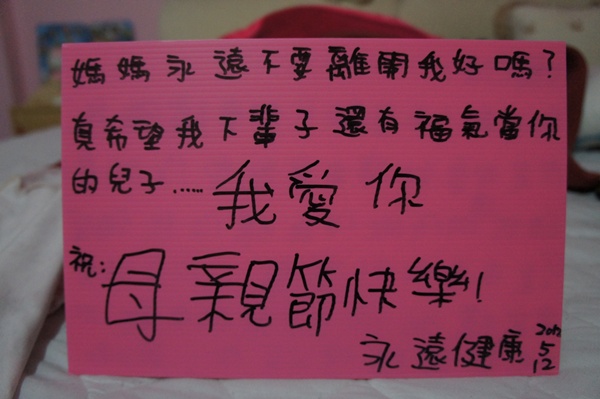 媽媽永遠不要離開我好嗎?
真希望我下輩子還有福氣當你
的兒子……我愛你
祝:母親節快樂!
永遠健康
2012
5
12